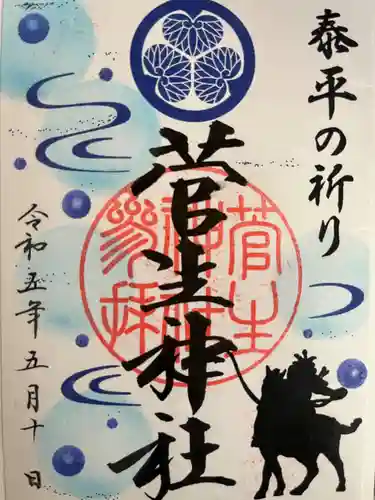 泰平の祈り
菅生神社
菅生神社参拝
令和五年五月十日